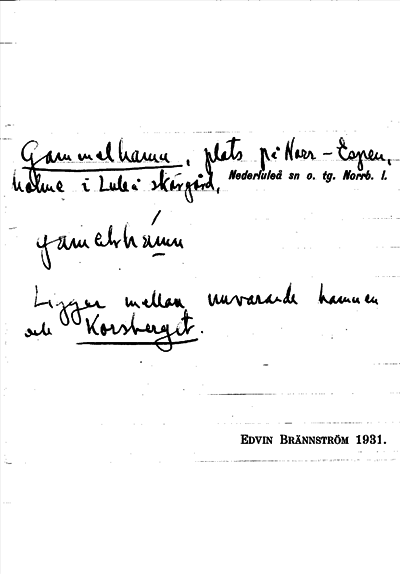 Gammelhamn, plats på Norr-Espen,
holme i Luleå skärgård, Nederluleå sn o. tg. Norrb. l.
gamelhámn
Ligger mellan nuvarande hamnen
och Korsberget.
EDVIN BRÄNNSTRÖM 1931.